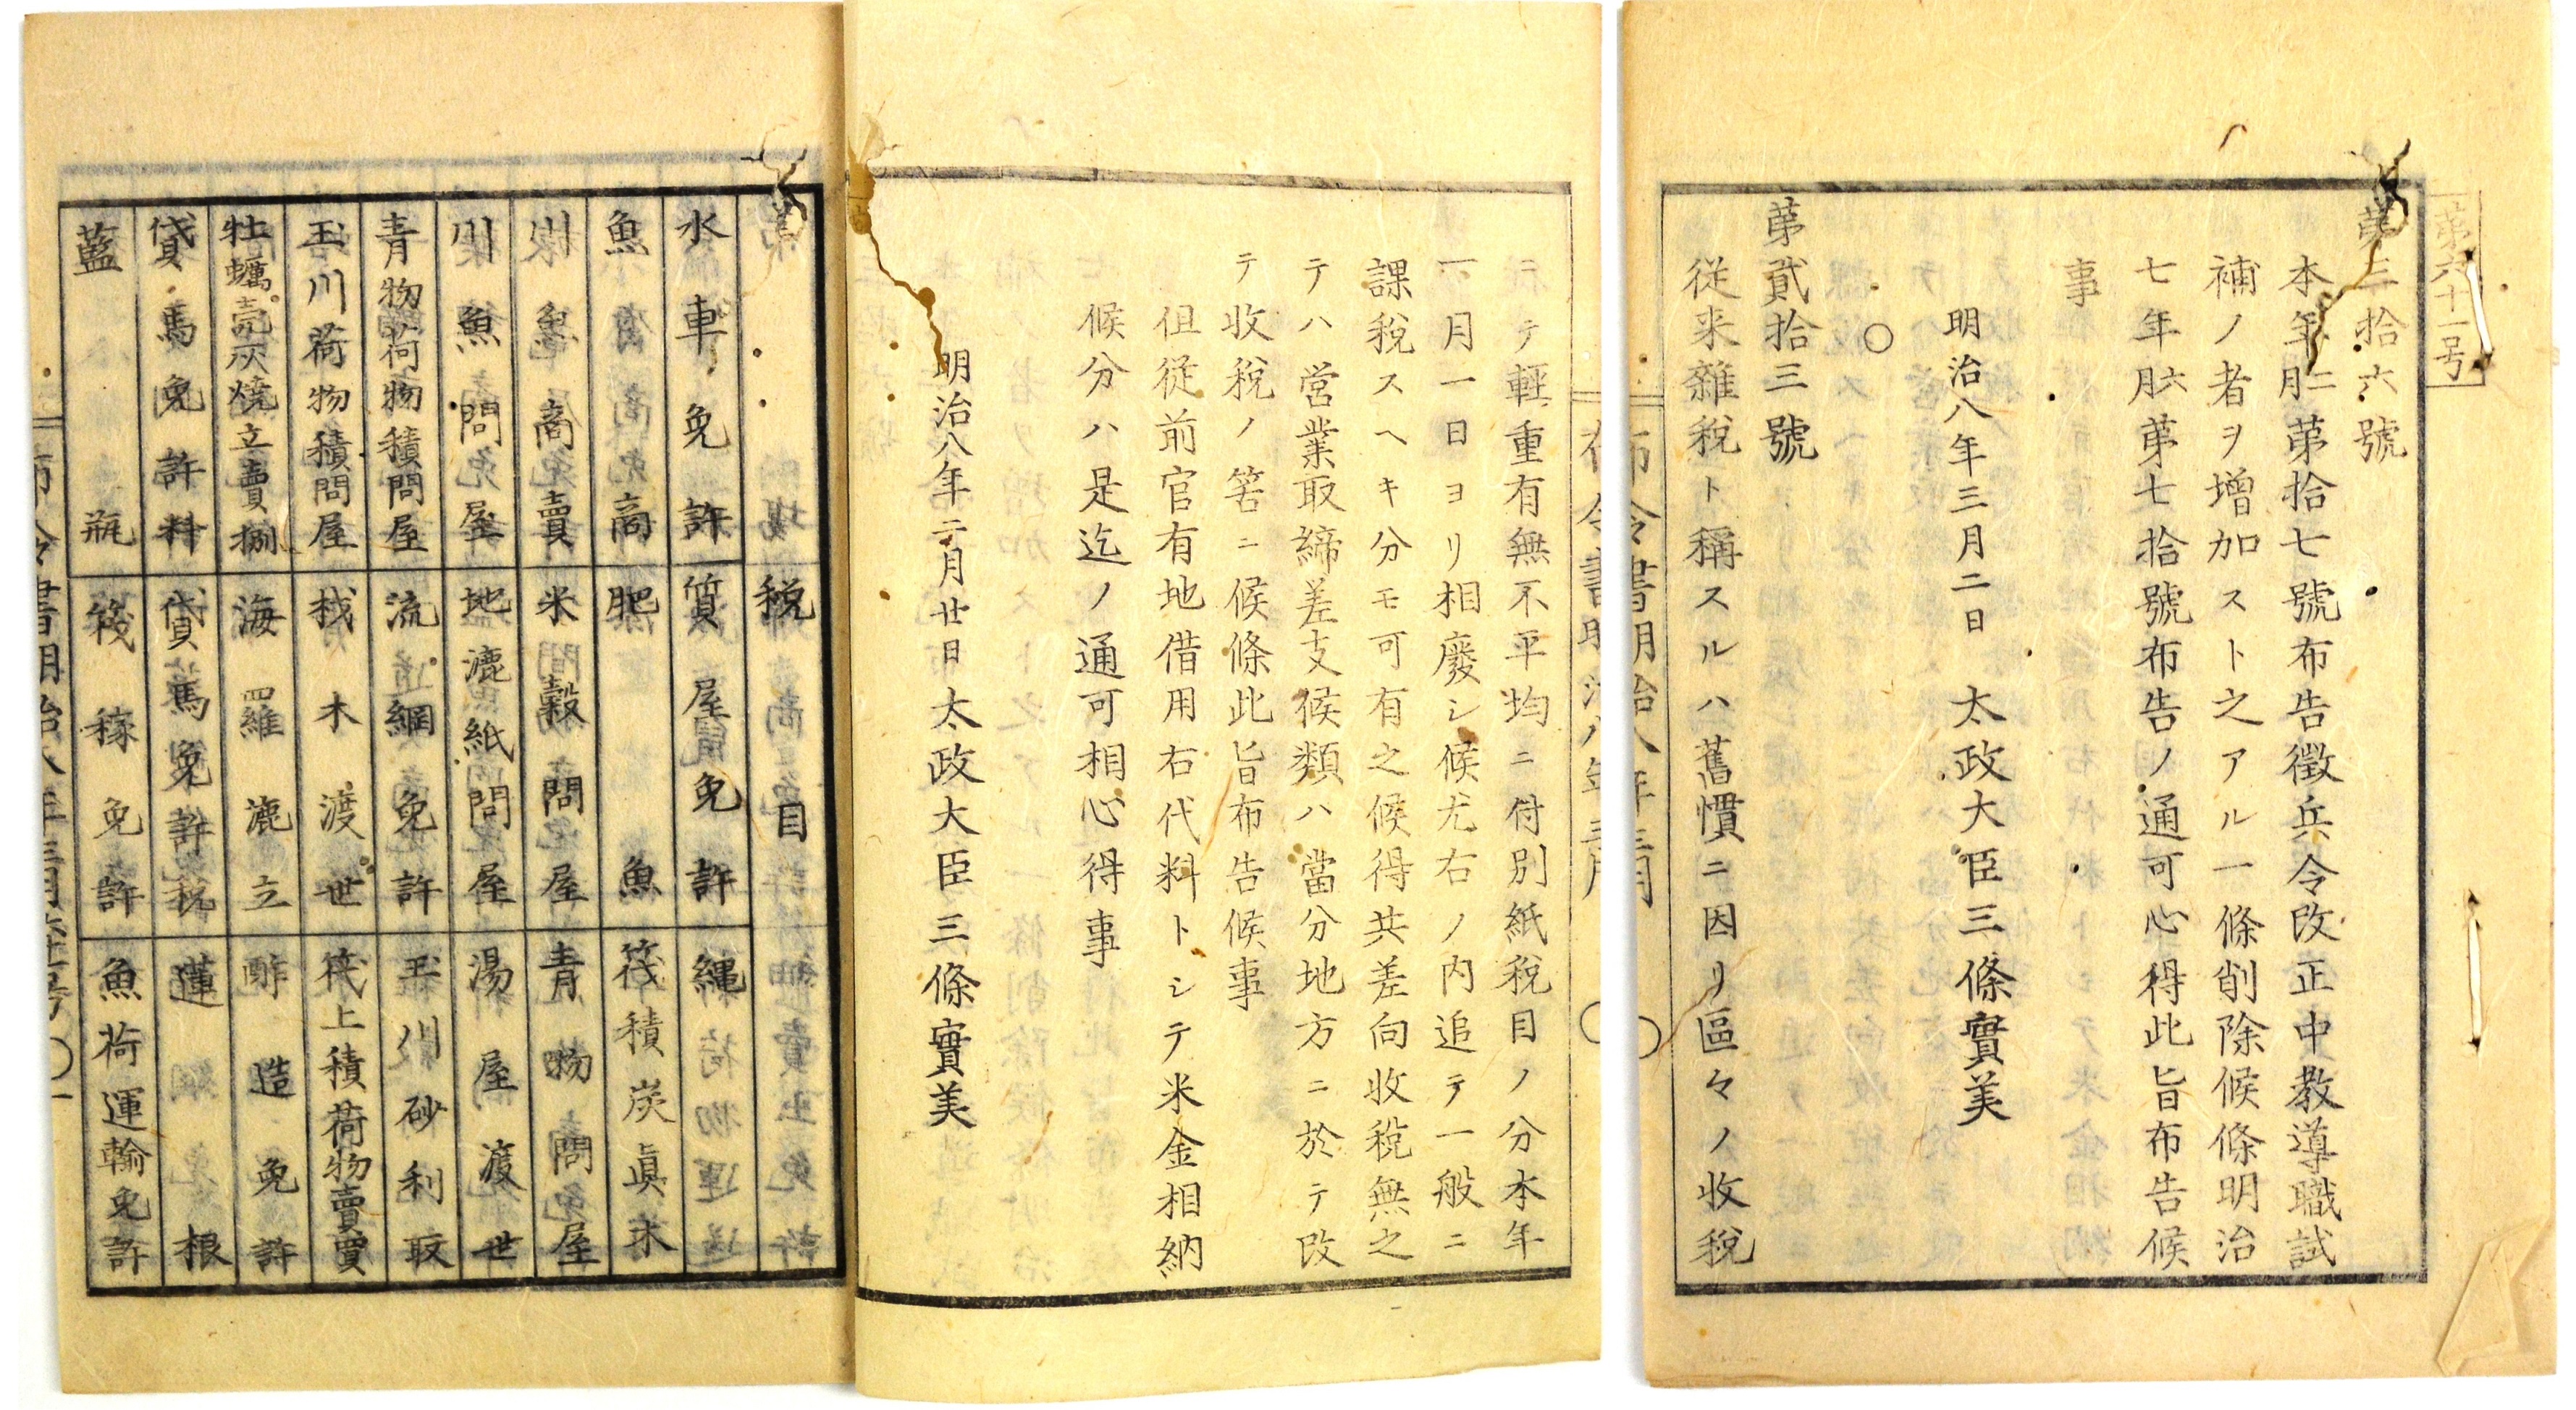 第六十一号
第三拾六號
本年二月第拾七號布告徴兵令改正中教導職試
補ノ者ヲ増加スト之アル一條削除候條明治
七年六月第七拾號布告ノ通可心得此旨布告候
事
明治八年三月二日 太政大臣三條實美
○
第貳拾三號
従来雜税ト稱スルハ舊慣ニ因リ區々ノ收税
布令書明治八年三月
ニテ輕重有無不平均ニ付別紙税目ノ分本年
一月一日ヨリ相廢シ候尤右ノ内追テ一般ニ
課税スヘキ分モ可有之候得共差向收税無之
テハ営業取締差支候類ハ當分地方ニ於テ改
テ收税ノ筈ニ候條此旨布告候事
但従前官有地借用右代料トシテ米金相納
候分ハ是迄ノ通可相心得事
明治八年二月廿日 太政大臣三條實美
税目
水車免許 質屋免許 縄
魚商 肥魚 筏積炭真木
川魚商賣 米穀問屋 青物問屋
川魚問屋 地漉紙問屋 湯屋渡世
青物荷物積問屋 流網免許 玉川砂利取
玉川荷物積問屋 材木渡世 筏上積荷物賣買
牡蠣売灰焼立賣捌 海羅漉立 酢造免許
貸馬免許料 貸馬免許税 蓮根
藍瓶 筏稼免許 魚荷運輸免許
布令書明治八年三月